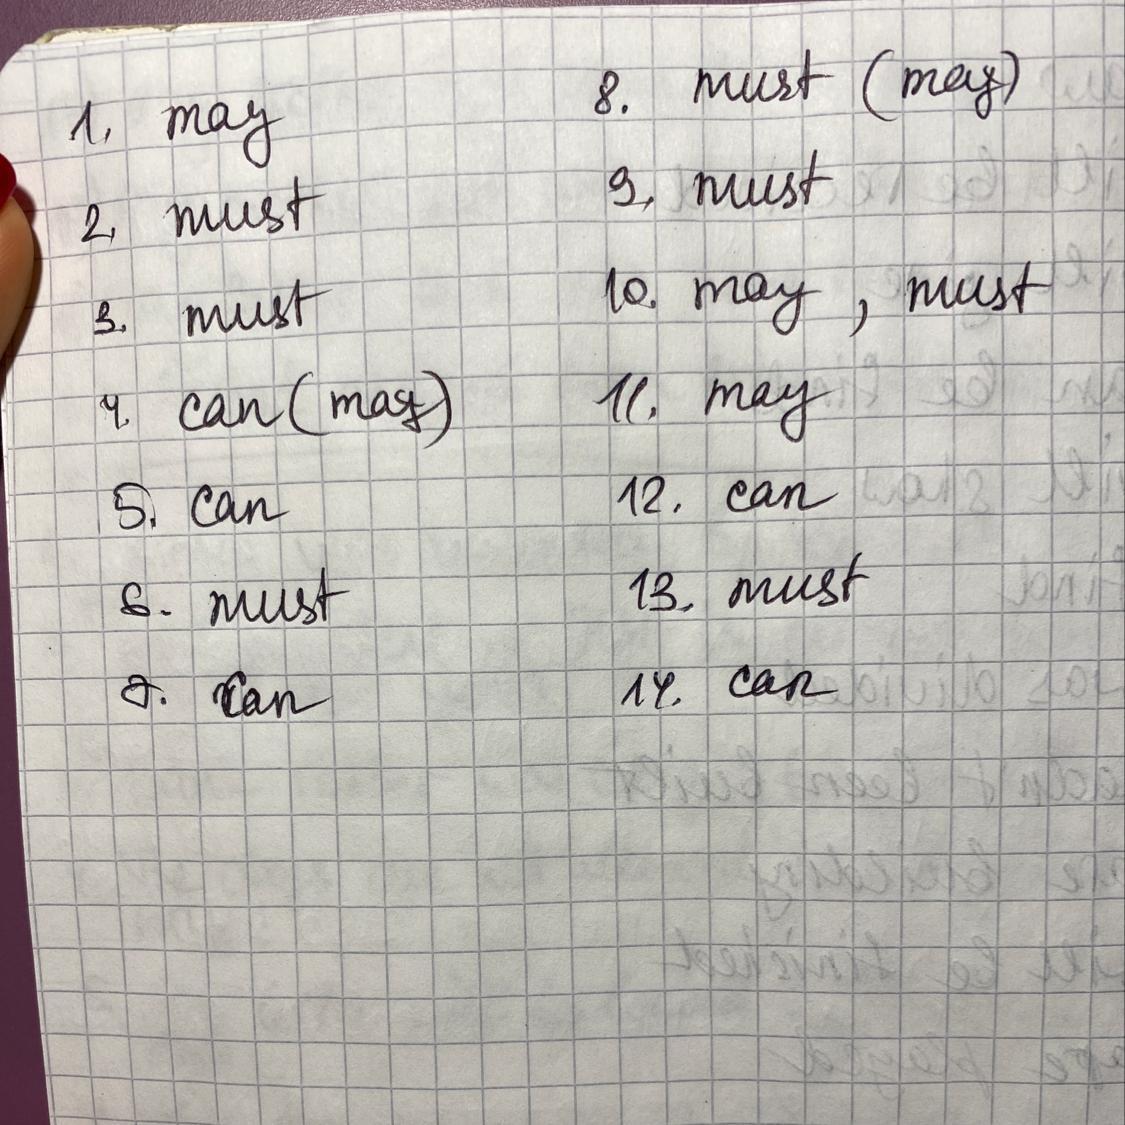 1. may
2. must
3. must
4. can (may)
5. can
6. must
7. can
8. must (may)
9. must
10. may , must
11. may
12. can
13. must
14. can